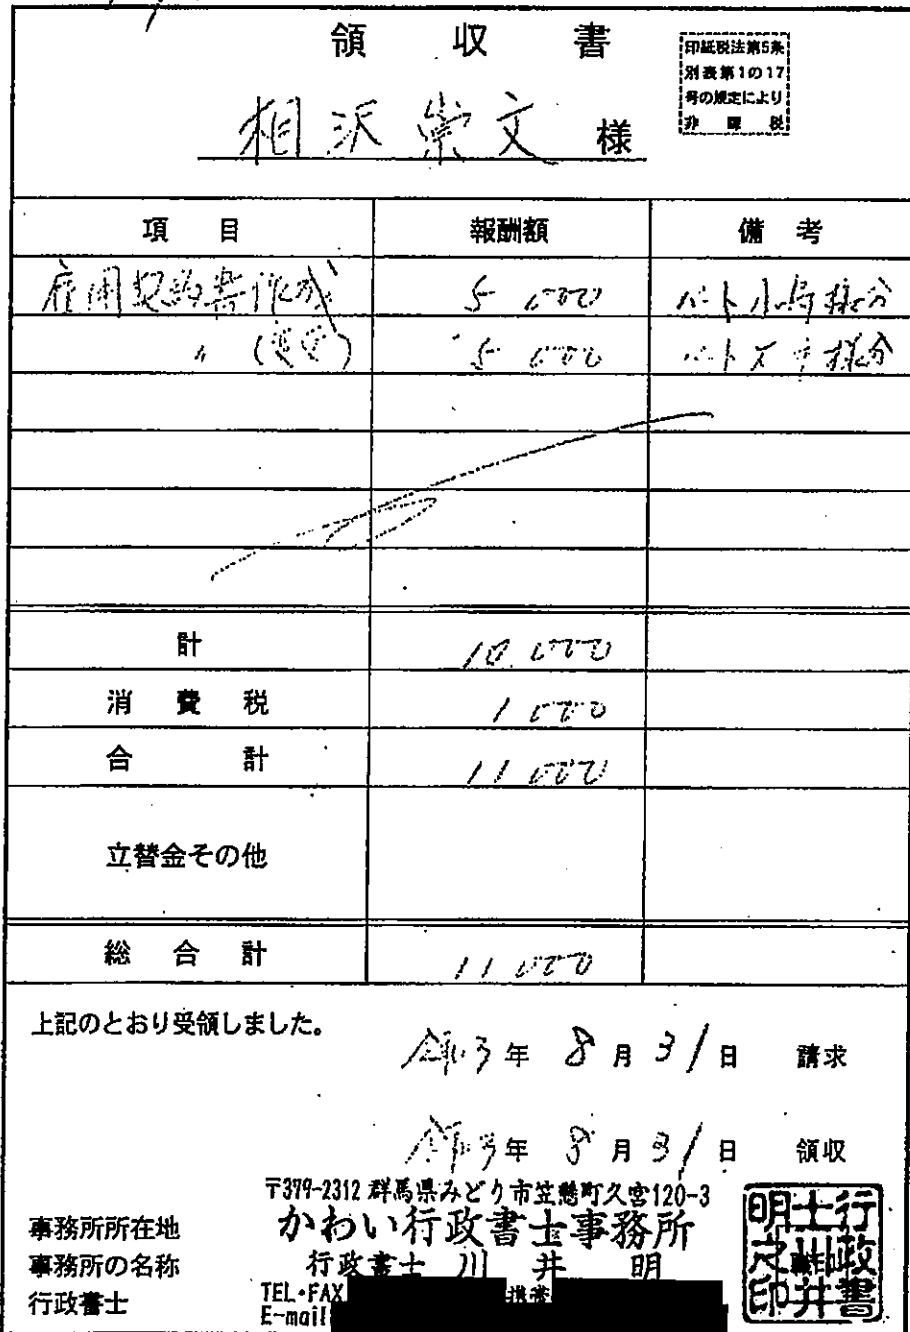 領収書
印紙税法第5条
別表第1の17
号の規定により
非課税
相沢崇文様
項目 報酬額 備考
雇用契約書作成 5000 パート小島様分
〃(変更) 5000 パート 様分
計 10,000
消費税 1000
合計 11000
立替金その他
総合計 11000
上記のとおり受領しました。
令和3年8月31日 請求
令和3年8月31日 領収
〒379-2312 群馬県みどり市笠懸町久宮120-3
事務所所在地 かわい行政書士事務所
事務所の名称 行政書士 川井 明
行政書士 TEL・FAX 携帯
E-mail
行政書士川井明之印